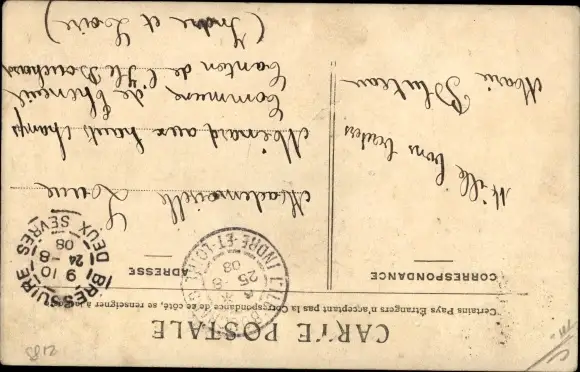 CARTE POSTALE
Certains Pays Étrangers n'acceptant pas la Correspondance de ce côté, se renseigner à la
CORRESPONDANCE
Mille bons baisers
Marie
ADRESSE
Mademoiselle Louise
Meinard aux hauts champs
Commune de Theneuil
Canton de l'Ile Bouchard
(Indre et Loire)
BRESSUIRE
9 10
24 - 8
08
DEUX SÈVRES
L'ILE
25 - 8
08
INDRE-ET-LOIRE
2185